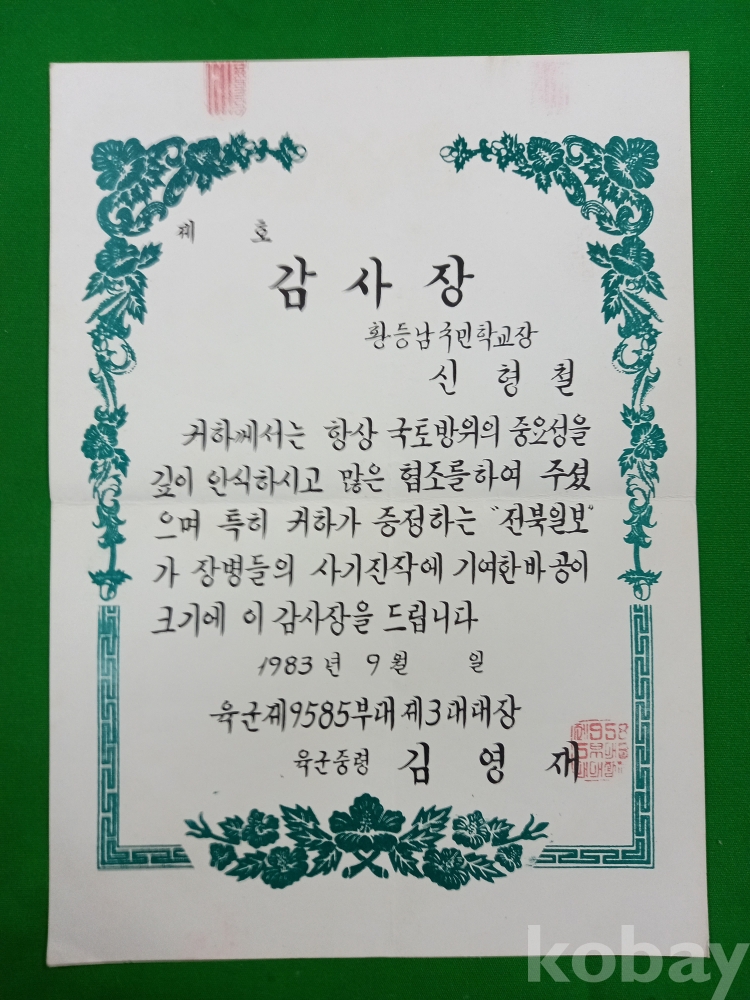 제 호
감사장
황등남국민학교장
신 형 철
귀하께서는 항상 국토방위의 중요성을
깊이 인식하시고 많은 협조를하여 주셨
으며 특히 귀하가 증정하는 "전북일보"
가 장병들의 사기진작에 기여한바 공이
크기에 이 감사장을 드립니다
1983년 9월 일
육군제9585부대제3대대장
육군중령 김 영 재
kobay